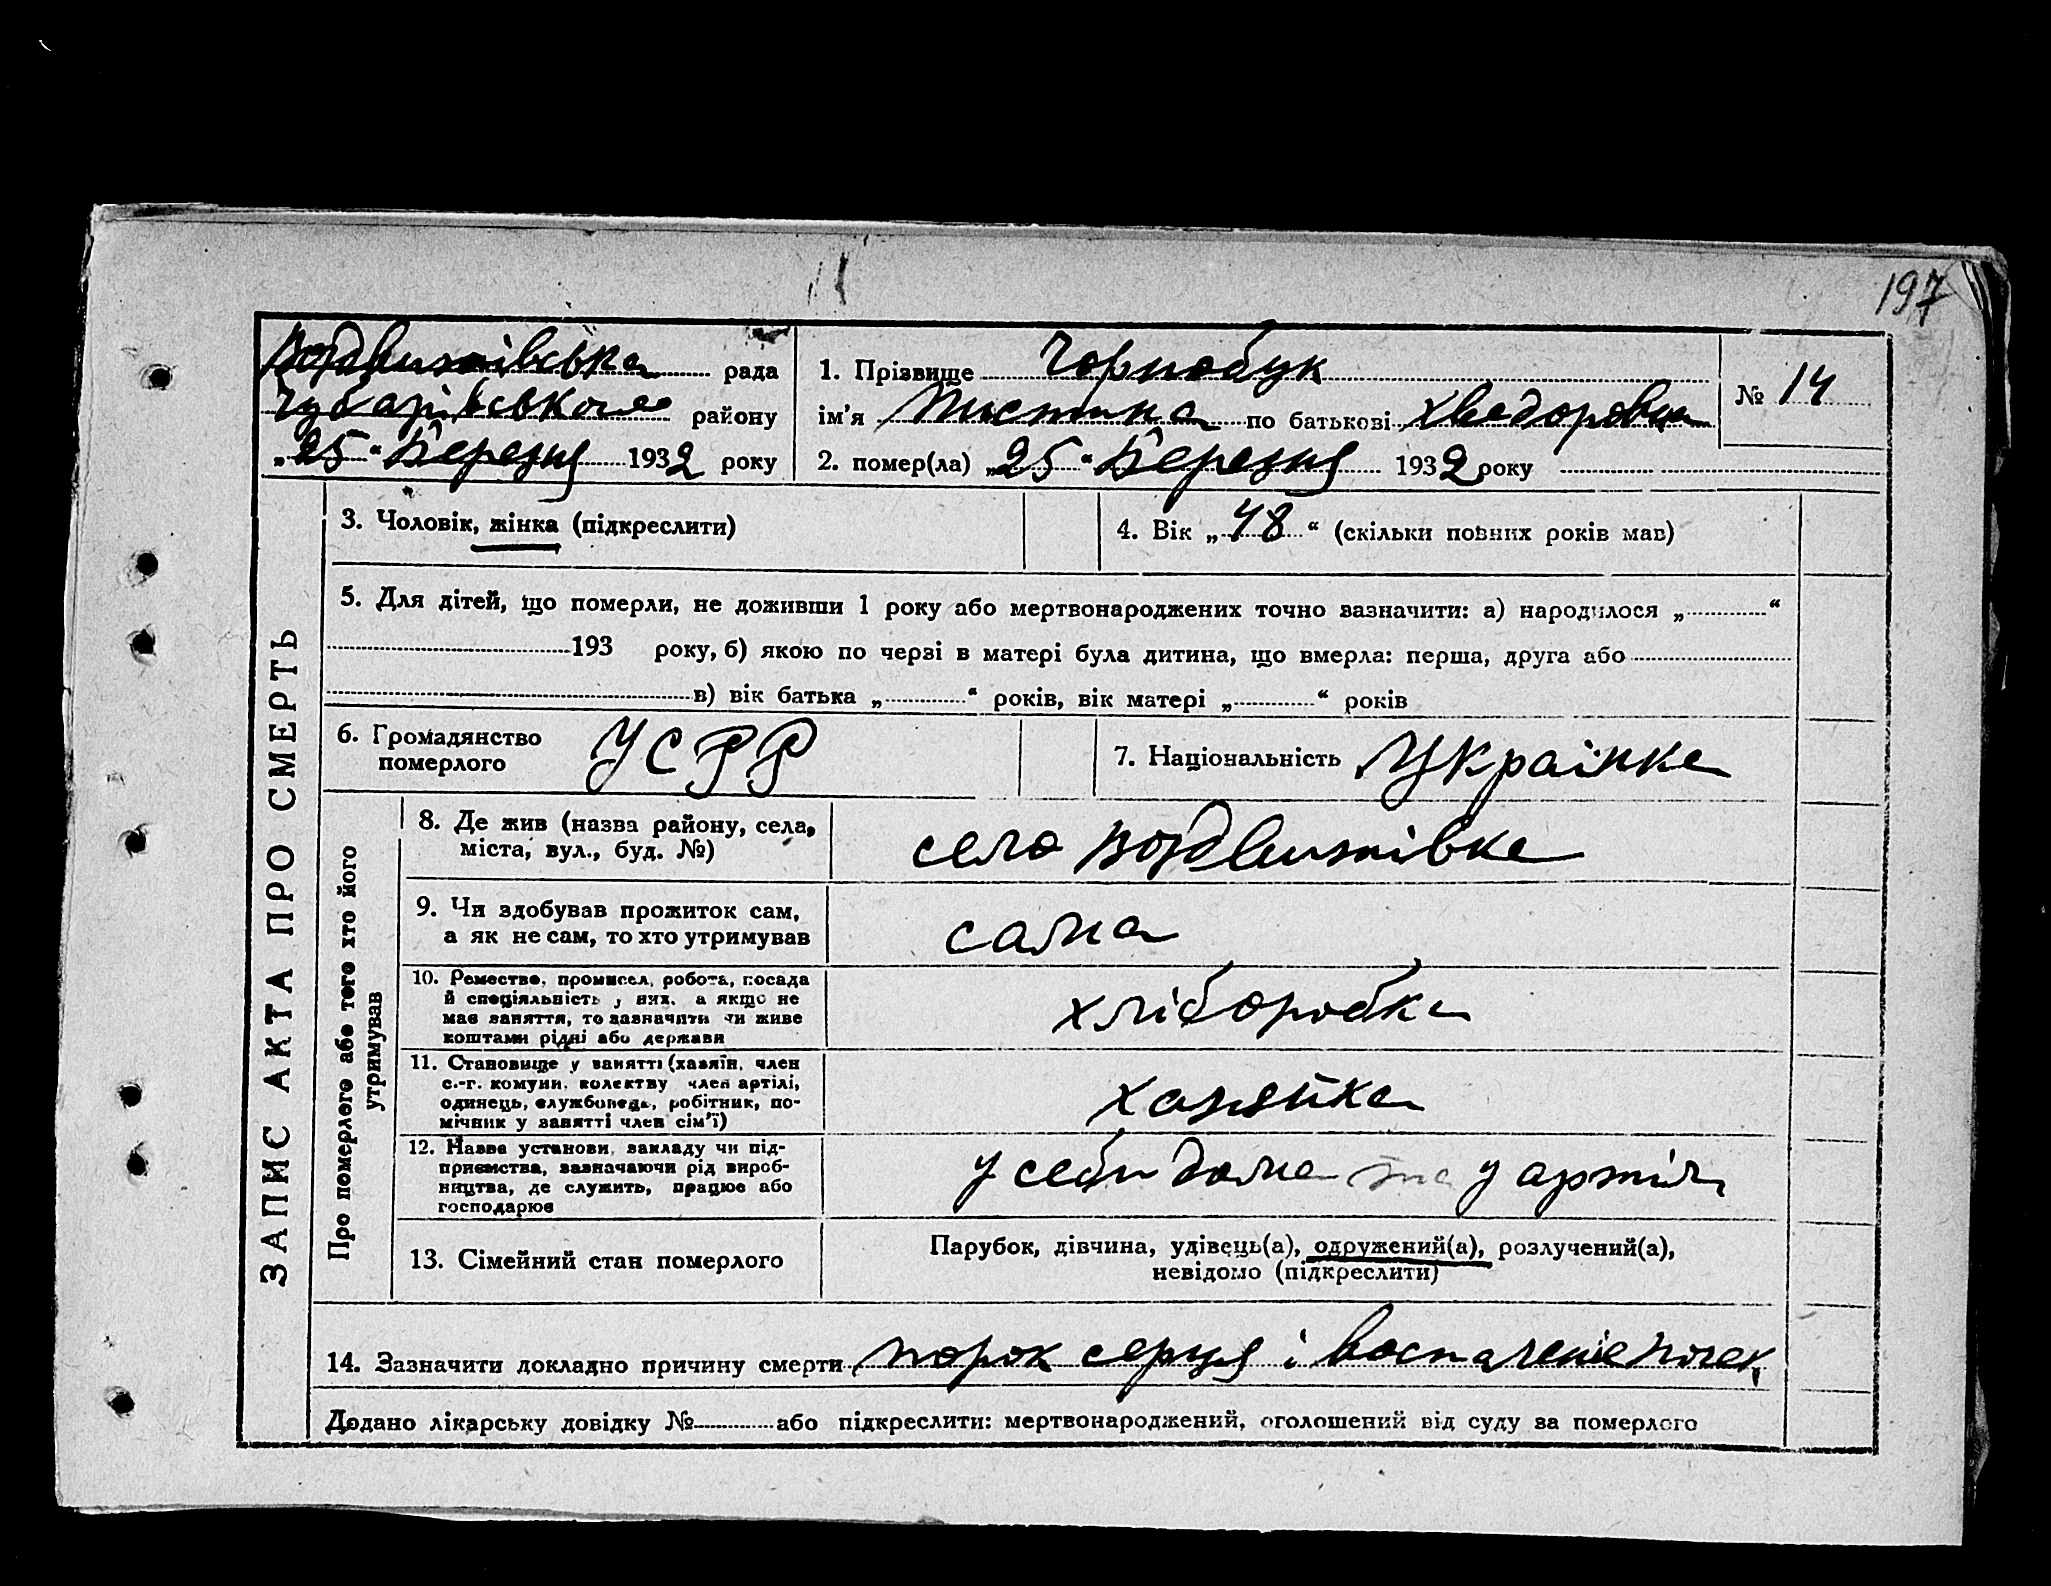 197
Воздвижівська рада
Чубарівського району
„25“ Березня 1932 року
1. Прізвище Чорнобук
ім'я Пистина по батькові Хведоровна
№ 14
2. помер(ла) „25“ Березня 1932 року
ЗАПИС АКТА ПРО СМЕРТЬ
3. Чоловік, жінка (підкреслити)
4. Вік „48“ (скільки повних років мав)
5. Для дітей, що померли, не доживши 1 року або мертвонароджених точно зазначити: а) народилося „ “
193 року, б) якою по черзі в матері була дитина, що вмерла: перша, друга або
в) вік батька „ “ років, вік матері „ “ років
6. Громадянство
померлого
УСРР
7. Національність Українка
Про померлого або того хто його
утримував
8. Де жив (назва району, села,
міста, вул., буд. №)
село Воздвижівка
9. Чи здобував прожиток сам,
а як не сам, то хто утримував
сама
10. Ремество, промисел, робота, посада
й спеціяльність у них, а якщо не
має заняття, то зазначити чи живе
коштами рідні або держави
хліборобка
11. Становище у занятті (хазяїн, член
с.-г. комуни, колективу член артілі,
одинець, службовець, робітник, по-
мічник у занятті член сім'ї)
хазяйка
12. Назва установи, закладу чи під-
приємства, зазначаючи рід вироб-
ництва, де служить, працює або
господарює
у себи дома та у артіли
13. Сімейний стан померлого
Парубок, дівчина, удівець(а), одружений(а), розлучений(а),
невідомо (підкреслити)
14. Зазначити докладно причину смерти порок серця і воспаленіе почек
Додано лікарську довідку № або підкреслити: мертвонароджений, оголошений від суду за померлого